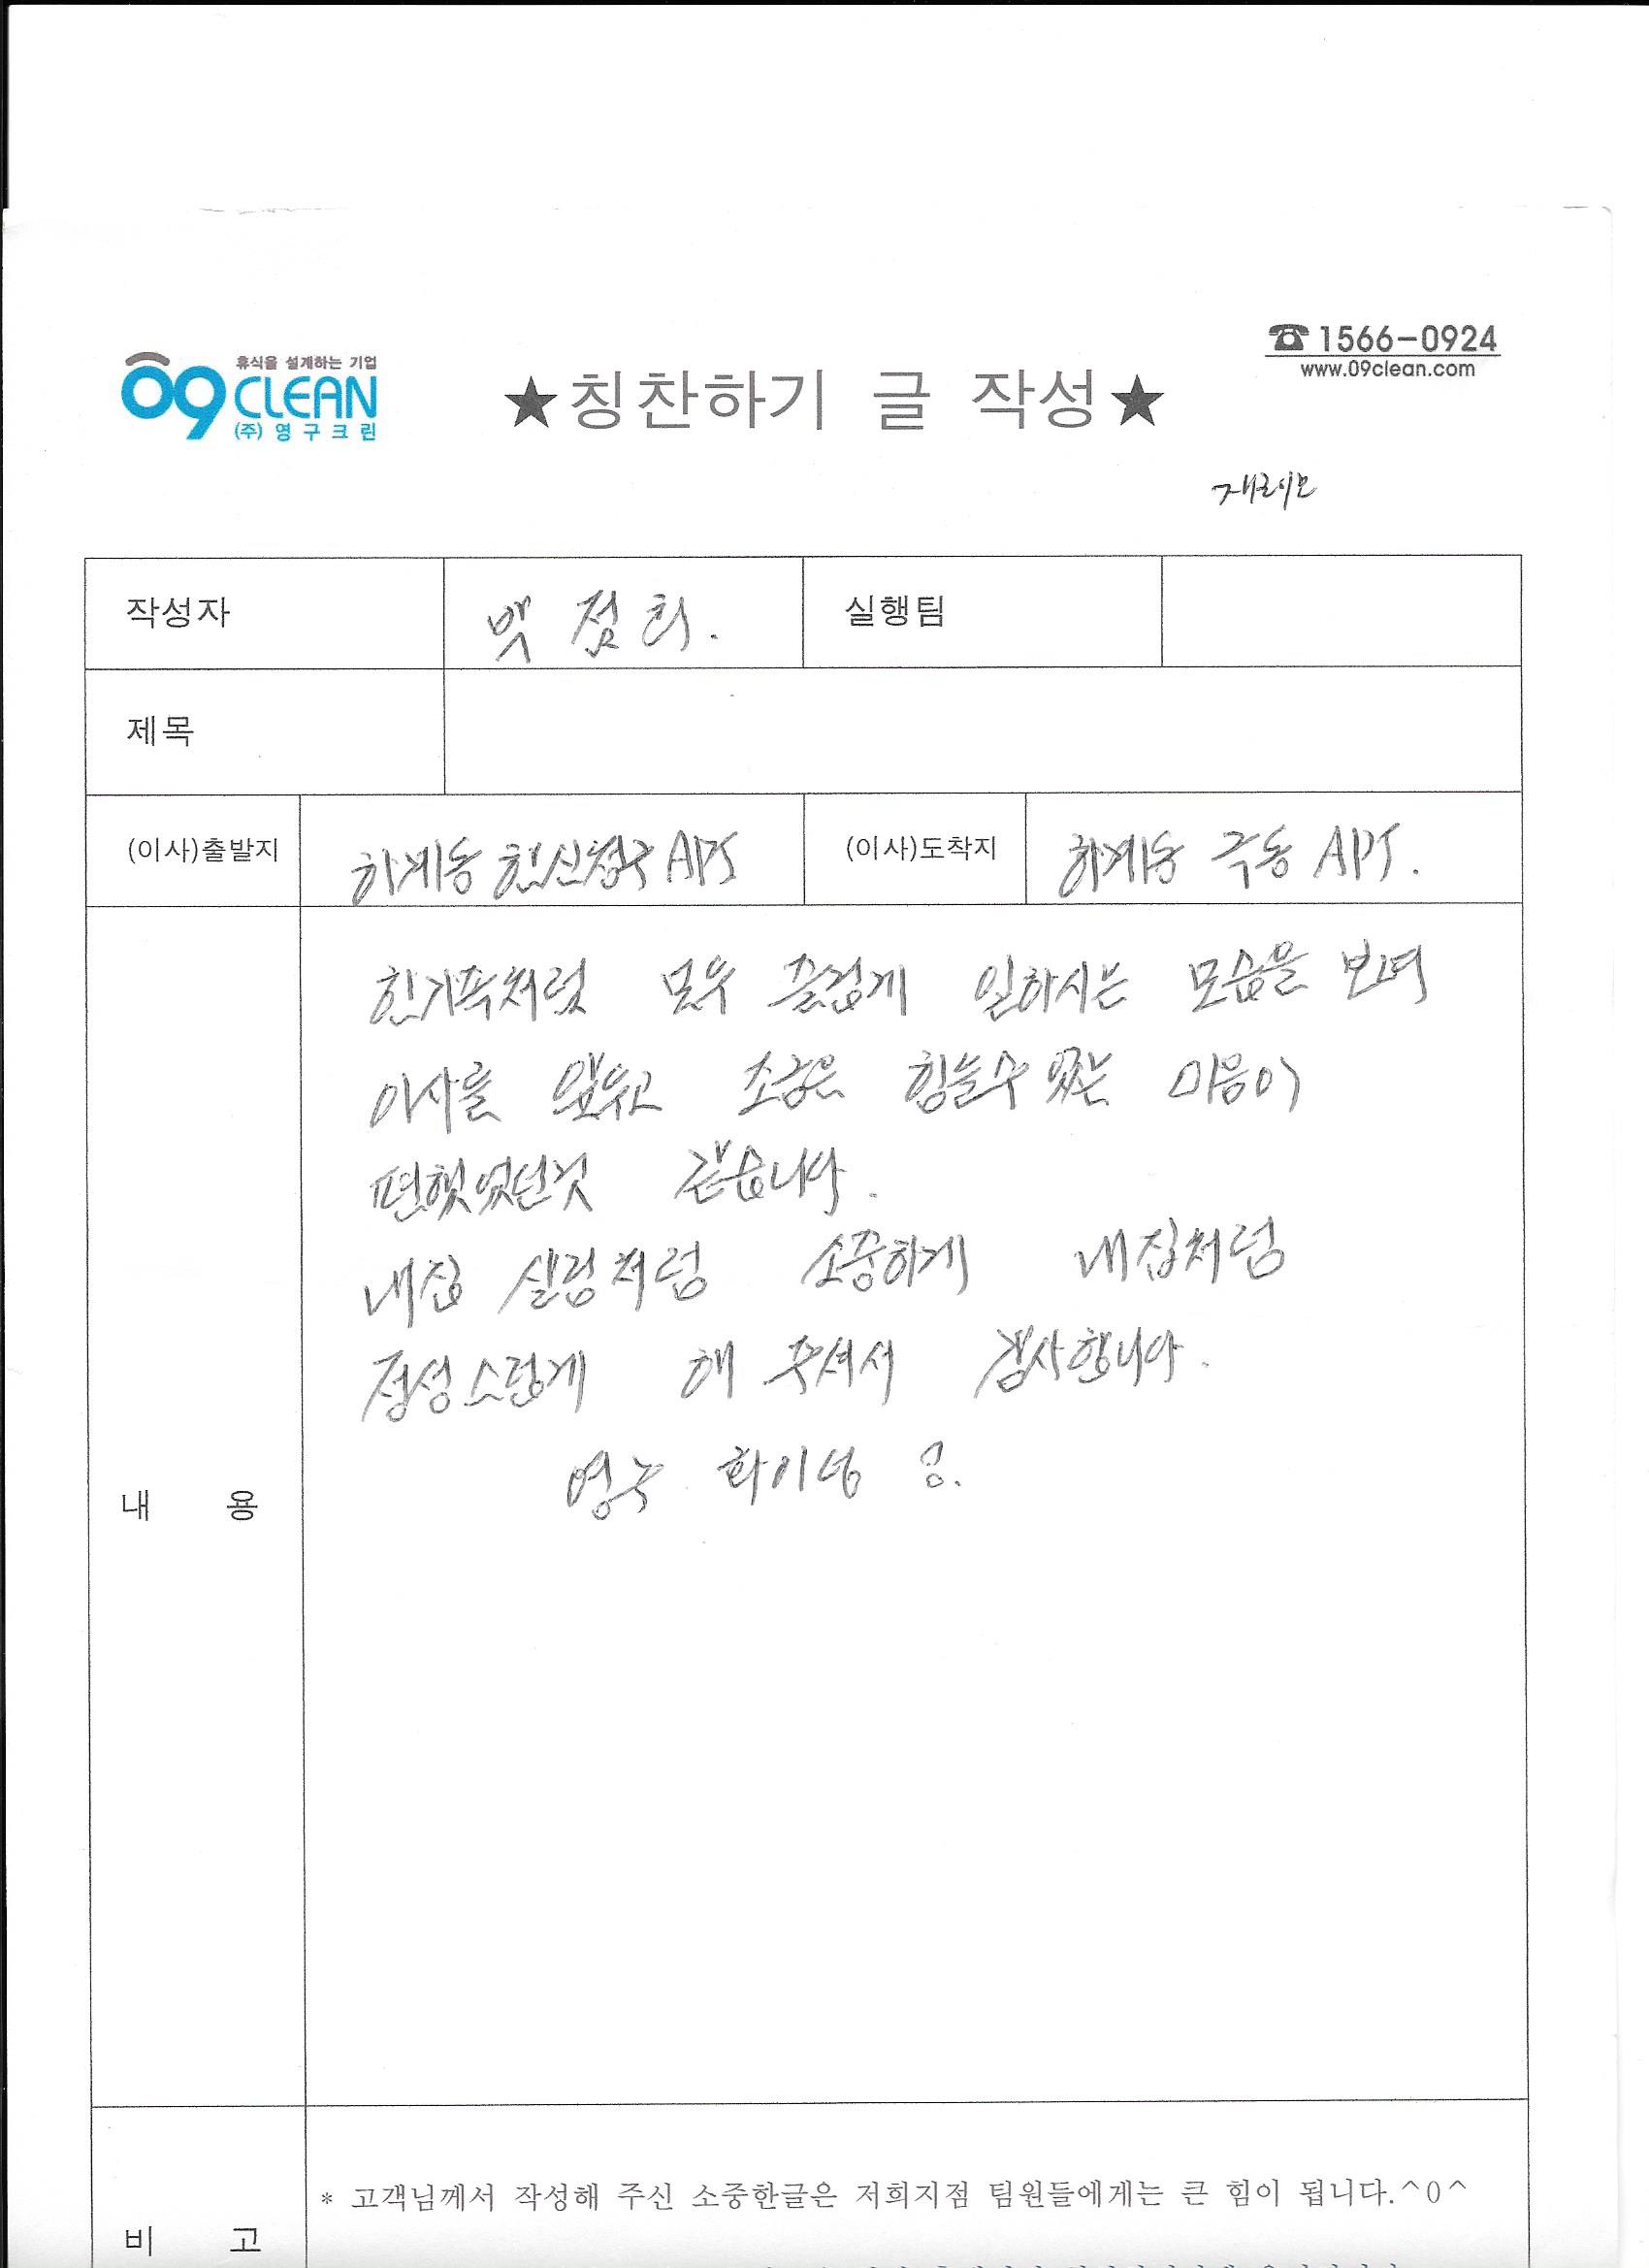 휴식을 설계하는 기업
09 CLEAN
(주) 영구크린
☎ 1566-0924
www.09clean.com
★칭찬하기 글 작성★
작성자 백 점 희. 실행팀
제목
(이사)출발지 하계동 한신청구 APT (이사)도착지 하계동 극동 APT.
내 용
한가족처럼 모두 즐겁게 일하시는 모습을 보며
이사를 앞두고 조금은 힘들수 있는 마음이
편했었던것 같습니다.
내집 살림처럼 소중하게 내집처럼
정성스럽게 해 주셔서 감사합니다.
영구 화이팅
비 고
* 고객님께서 작성해 주신 소중한글은 저희지점 팀원들에게는 큰 힘이 됩니다.^0^